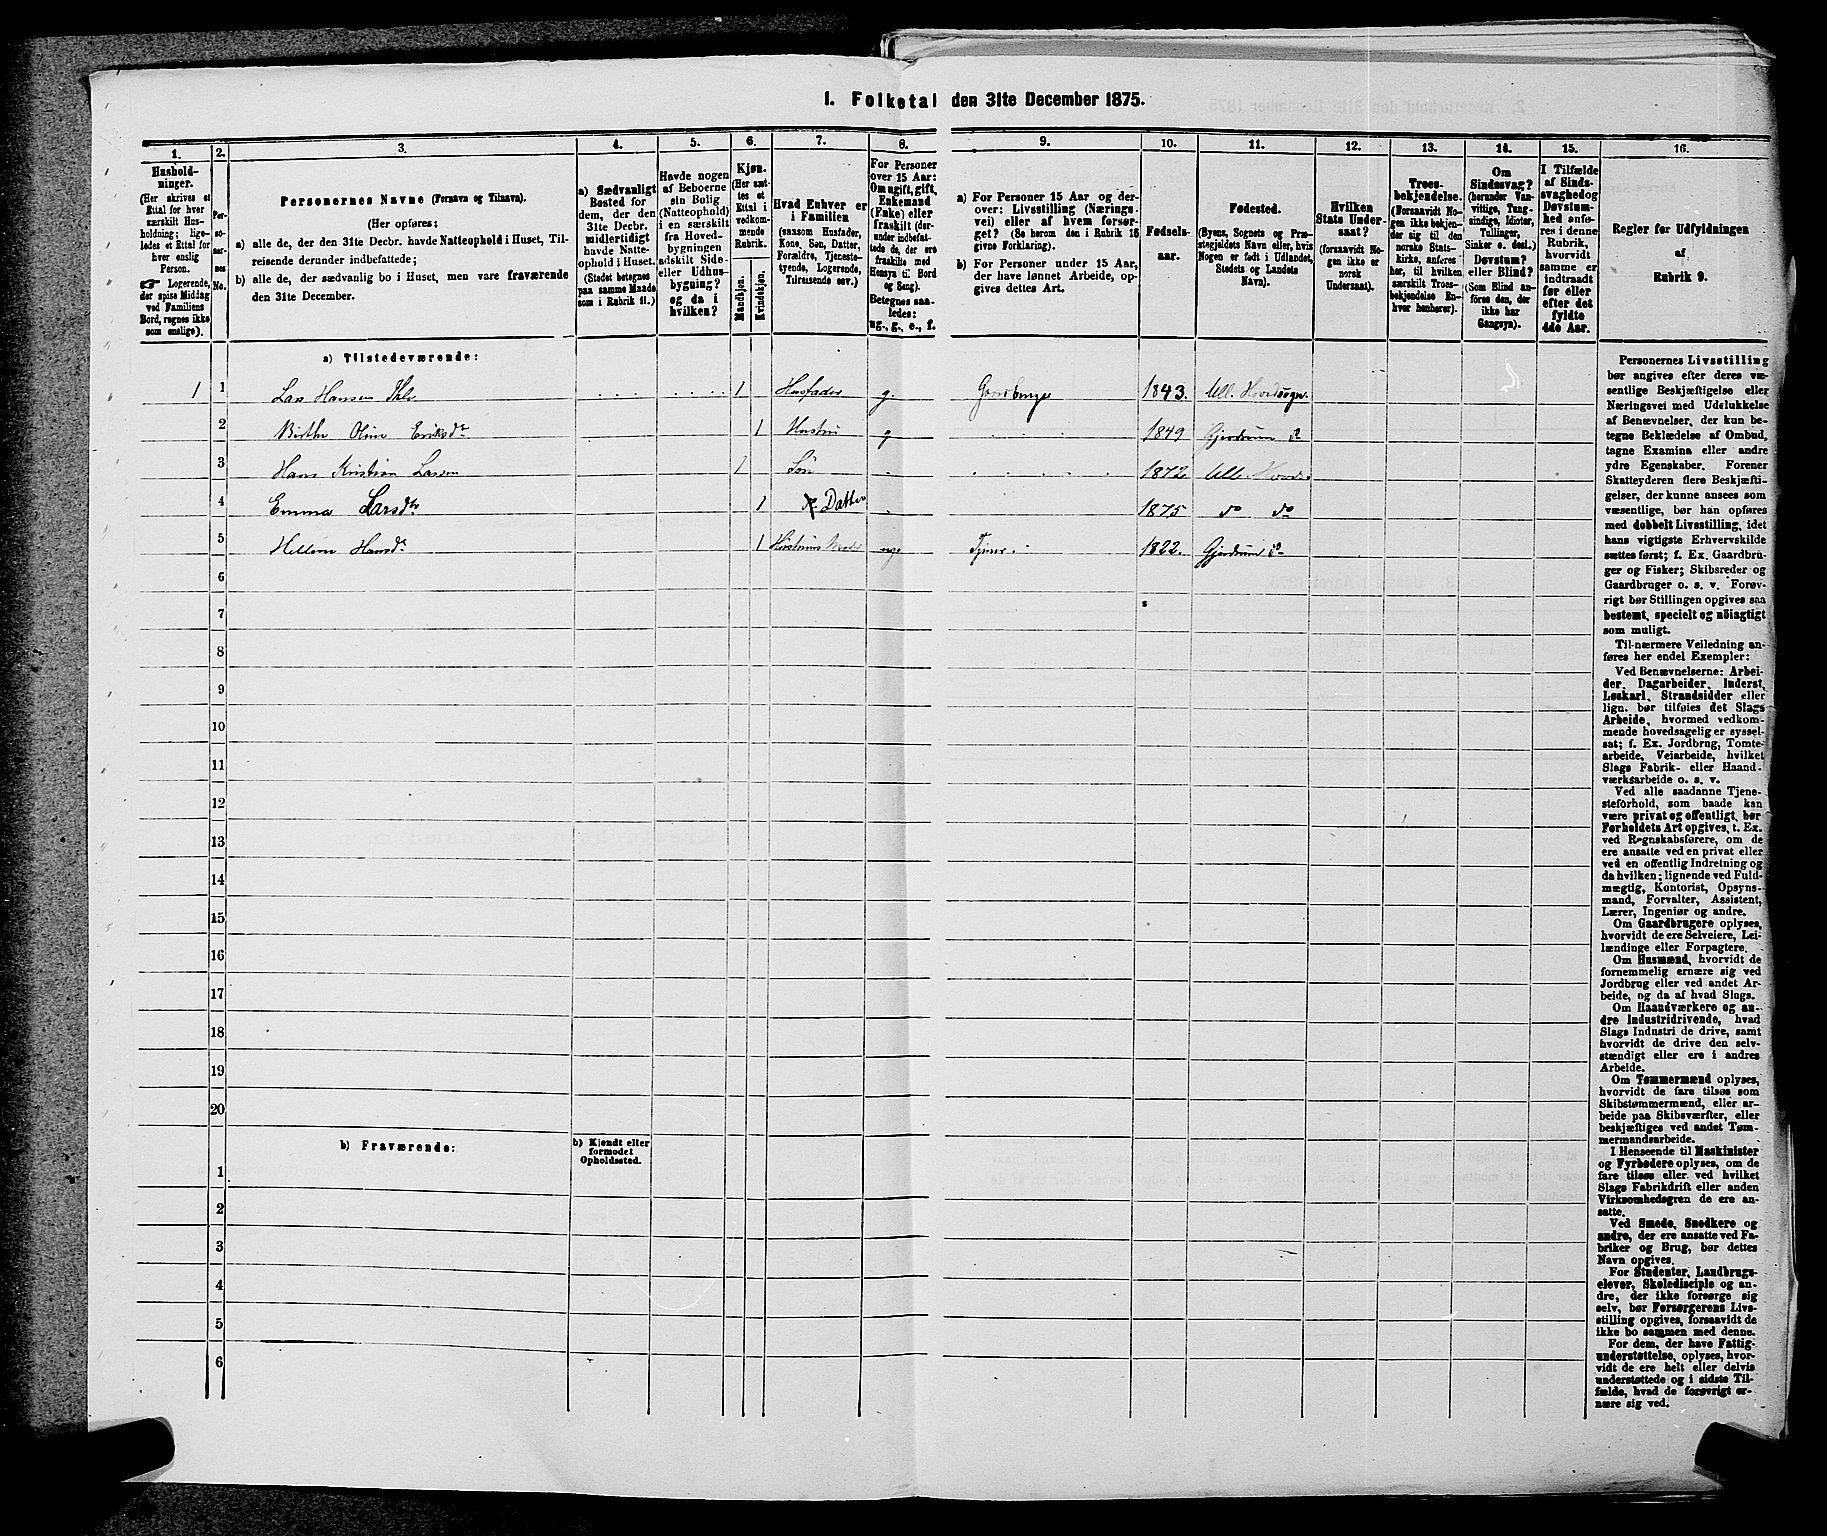 1. Folketal den 31te December 1875.
1.
Hushold-
ninger.
(Her skrives et
Ettal for hver
særskilt Hus-
holdning; lige-
ledes et Ettal for
hver enslig
Person.
☛ Logerende,
der spise Middag
ved Familiens
Bord, regnes ikke
som enslige).
2.
Per-
so-
ner-
nes
No.
3.
Personernes Navne (Fornavn og Tilnavn).
(Her opføres:
a) alle de, der den 31te Decbr. havde Natteophold i Huset, Til-
reisende derunder indbefattede;
b) alle de, der sædvanlig bo i Huset, men vare fraværende
den 31te December.
4.
a) Sædvanligt
Bosted for
dem, der den
31te Decbr.
midlertidigt
havde Natte-
ophold i Huset.
(Stedet betegnes
paa samme Maade
som i Rubrik 11.)
5.
Havde nogen
af Beboerne
sin Bolig
(Natteophold)
i en særskilt
fra Hoved-
bygningen
adskilt Side-
eller Udhus-
bygning?
og da i
hvilken?
6.
Kjøn.
(Her sæt-
tes et
Ettal i
vedkom-
mende
Rubrik.
Mandkjøn.
Kvindekjøn.
7.
Hvad Enhver er
i Familien
(saasom Husfader,
Kone, Søn, Datter,
Forældre, Tjeneste-
tyende, Logerende,
Tilreisende osv.)
8.
For Personer
over 15 Aar:
Om ugift, gift,
Enkemand
(Enke) eller
fraskilt (der-
under indbefat-
tede de, der ere
fraskilte med
Hensyn til Bord
og Seng).
Betegnes saa-
ledes:
ug., g., e., f.
9.
a) For Personer 15 Aar og der-
over: Livsstilling (Nærings-
vei) eller af hvem forsør-
get? (Se herom den i Rubrik 16
givne Forklaring).
b) For Personer under 15 Aar,
der have lønnet Arbeide, op-
gives dettes Art.
10.
Fødsels-
aar.
11.
Fødested.
(Byens, Sognets og Præ-
stegjeldets Navn eller, hvis
Nogen er født i Udlandet,
Stedets og Landets
Navn).
12.
Hvilken
Stats Under-
saat?
(forsaavidt No-
gen ikke er
norsk
Undersaat).
13.
Troes-
bekjendelse.
(Forsaavidt No-
gen ikke bekjen-
der sig til den
norske Stats-
kirke, anføres
her, til hvilken
særskilt Troes-
bekjendelse En-
hver henhører).
14.
Om
Sindssvag?
(herunder Van-
vittige, Tung-
sindige, Idioter,
Tullinger,
Sinker o. desl.)
Døvstum?
eller Blind?
(Som Blind an-
føres den, der
ikke har
Gangsyn).
15.
I Tilfælde
af Sinds-
svaghed og
Døvstum-
hed anfø-
res i denne
Rubrik,
hvorvidt
samme er
indtraadt
før eller
efter det
fyldte
4de Aar.
16.
Regler for Udfyldningen
af
Rubrik 9.
a) Tilstedeværende:
1 1 Lars Hansen Ihle 1 Husfader g. Gaardbruger 1843. Ull. Hovedsogn
2 Birthe Oline Eriksdr 1 Hustru g 1849 Gjerdrum do
3 Hans Kristian Larsen 1 Søn 1872 Ull. Hoveds.
4 Emma Larsdtr 1 Datter 1875 do do
5 Hellene Hansdr 1 Hustrues Moder 1822. Gjerdrum do
6
7
8
9
10
11
12
13
14
15
16
17
18
19
20
b) Fraværende:
b) Kjendt eller
formodet
Opholdssted.
1
2
3
4
5
6
Personernes Livsstilling
bør angives efter deres væ-
sentlige Beskjæftigelse eller
Næringsvei med Udelukkelse
af Benævnelser, der kun be-
tegne Beklædelse af Ombud,
tagne Examina eller andre
ydre Egenskaber. Forener
Skatteyderen flere Beskjæfti-
gelser, der kunne ansees som
væsentlige, bør han opføres
med dobbelt Livsstilling, idet
hans vigtigste Erhvervskilde
sættes først; f. Ex. Gaardbru-
ger og Fisker; Skibsreder og
Gaardbruger o. s. v. Forøv-
rigt bør Stillingen opgives saa
bestemt, specielt og nøiagtigt
som muligt.
Til nærmere Veiledning an-
føres her endel Exempler:
Ved Benævnelserne: Arbei-
der, Dagarbeider, Inderst,
Løskarl, Strandsidder eller
lign. bør tilføies det Slags
Arbeide, hvormed vedkom-
mende hovedsagelig er syssel-
sat; f. Ex. Jordbrug, Tomte-
arbeide, Veiarbeide, hvilket
Slags Fabrik- eller Haand-
værksarbeide o. s. v.
Ved alle saadanne Tjene-
steforhold, som baade kan
være privat og offentligt, bør
Forholdets Art opgives, t. Ex.
ved Regnskabsførere, om de
ere ansatte ved en privat eller
ved en offentlig Indretning og
da hvilken; lignende ved Fuld-
mægtig, Kontorist, Opsyns-
mand, Forvalter, Assistent,
Lærer, Ingeniør og andre.
Om Gaardbrugere oplyses,
hvorvidt de ere Selveiere, Lei-
lændinge eller Forpagtere.
Om Husmænd, hvorvidt de
fornemmelig ernære sig ved
Jordbrug eller ved andet Ar-
beide, og da af hvad Slags.
Om Haandværkere og an-
dre Industridrivende, hvad
Slags Industri de drive, samt
hvorvidt de drive den selv-
stændigt eller ere i andres
Arbeide.
Om Tømmermænd oplyses,
hvorvidt de fare tilsøs som
Skibstømmermænd, eller ar-
beide paa Skibsværfter, eller
beskjæftiges ved andet Tøm-
mermandsarbeide.
I Henseende til Maskinister
og Fyrbødere oplyses, om de
fare tilsøs eller ved hvilket
Slags Fabrikdrift eller anden
Virksomhedsgren de ere an-
satte.
Ved Smede, Snedkere og
andre, der ere ansatte ved Fa-
briker og Brug, bør dettes
Navn opgives.
For Studenter, Landbrugs-
elever, Skoledisciple og an-
dre, der ikke forsørge sig
selv, bør Forsørgerens Livs-
stilling opgives, forsaavidt de
ikke bo sammen med denne.
For dem, der have Fattig-
understøttelse, oplyses, hvor-
vidt de ere helt eller delvis
understøttede og i sidste Til-
fælde, hvad de forøvrigt er-
nære sig ved.